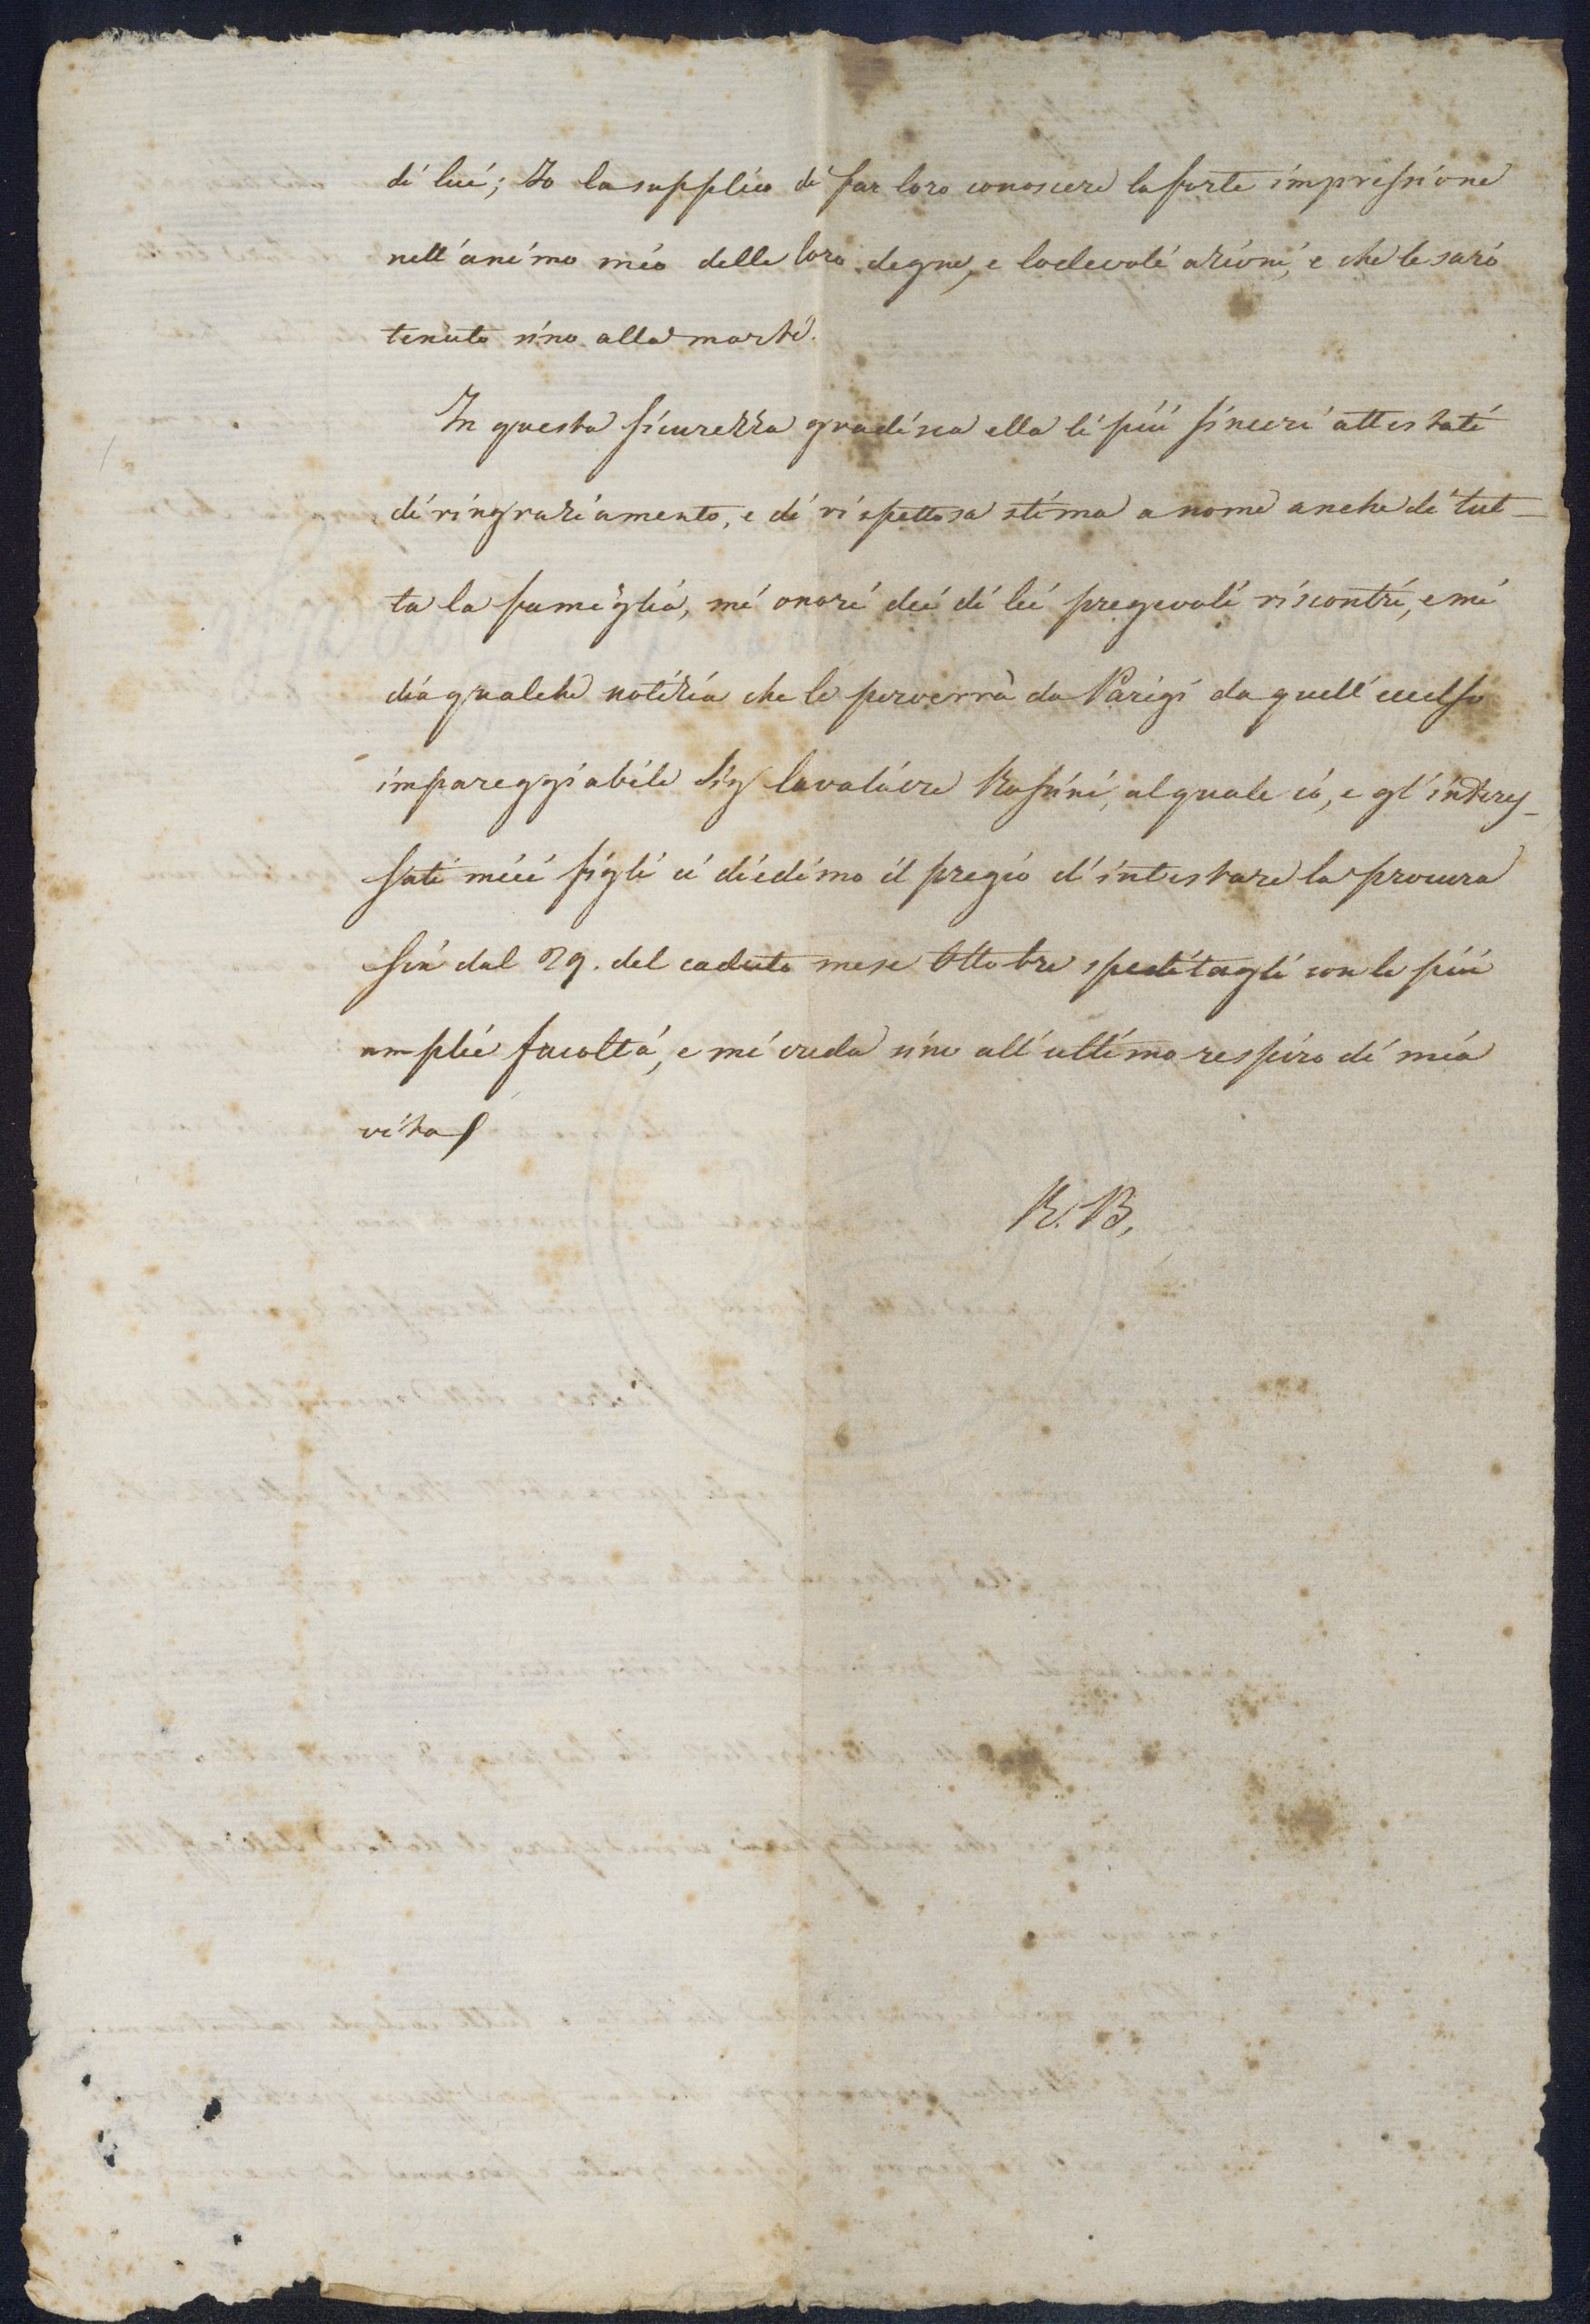 di lui; Io la supplico di far loro conoscere la forte impressione
nell'animo mio delle loro degne, e lodevoli azioni, e che le sarò
tenuto sino alla morte.
In questa sicurezza gradisca ella li più sinceri attestati
di ringraziamento, e di rispettosa stima a nome anche di tut-
ta la famiglia, mi onori dei di lei pregevoli riscontri, e mi
dia qualche notizia che le perverrà da Parigi da quell'eccelso
impareggiabile Sig Cavaliere Rossini, al quale io, e gl'interes-
sati miei figli ci diedimo il pregio d'intestare la procura
sin dal 29. del caduto mese Ottobre speditagli con le più
amplie facoltà, e mi creda sino all'ultimo respiro di mia
vita
R. B.